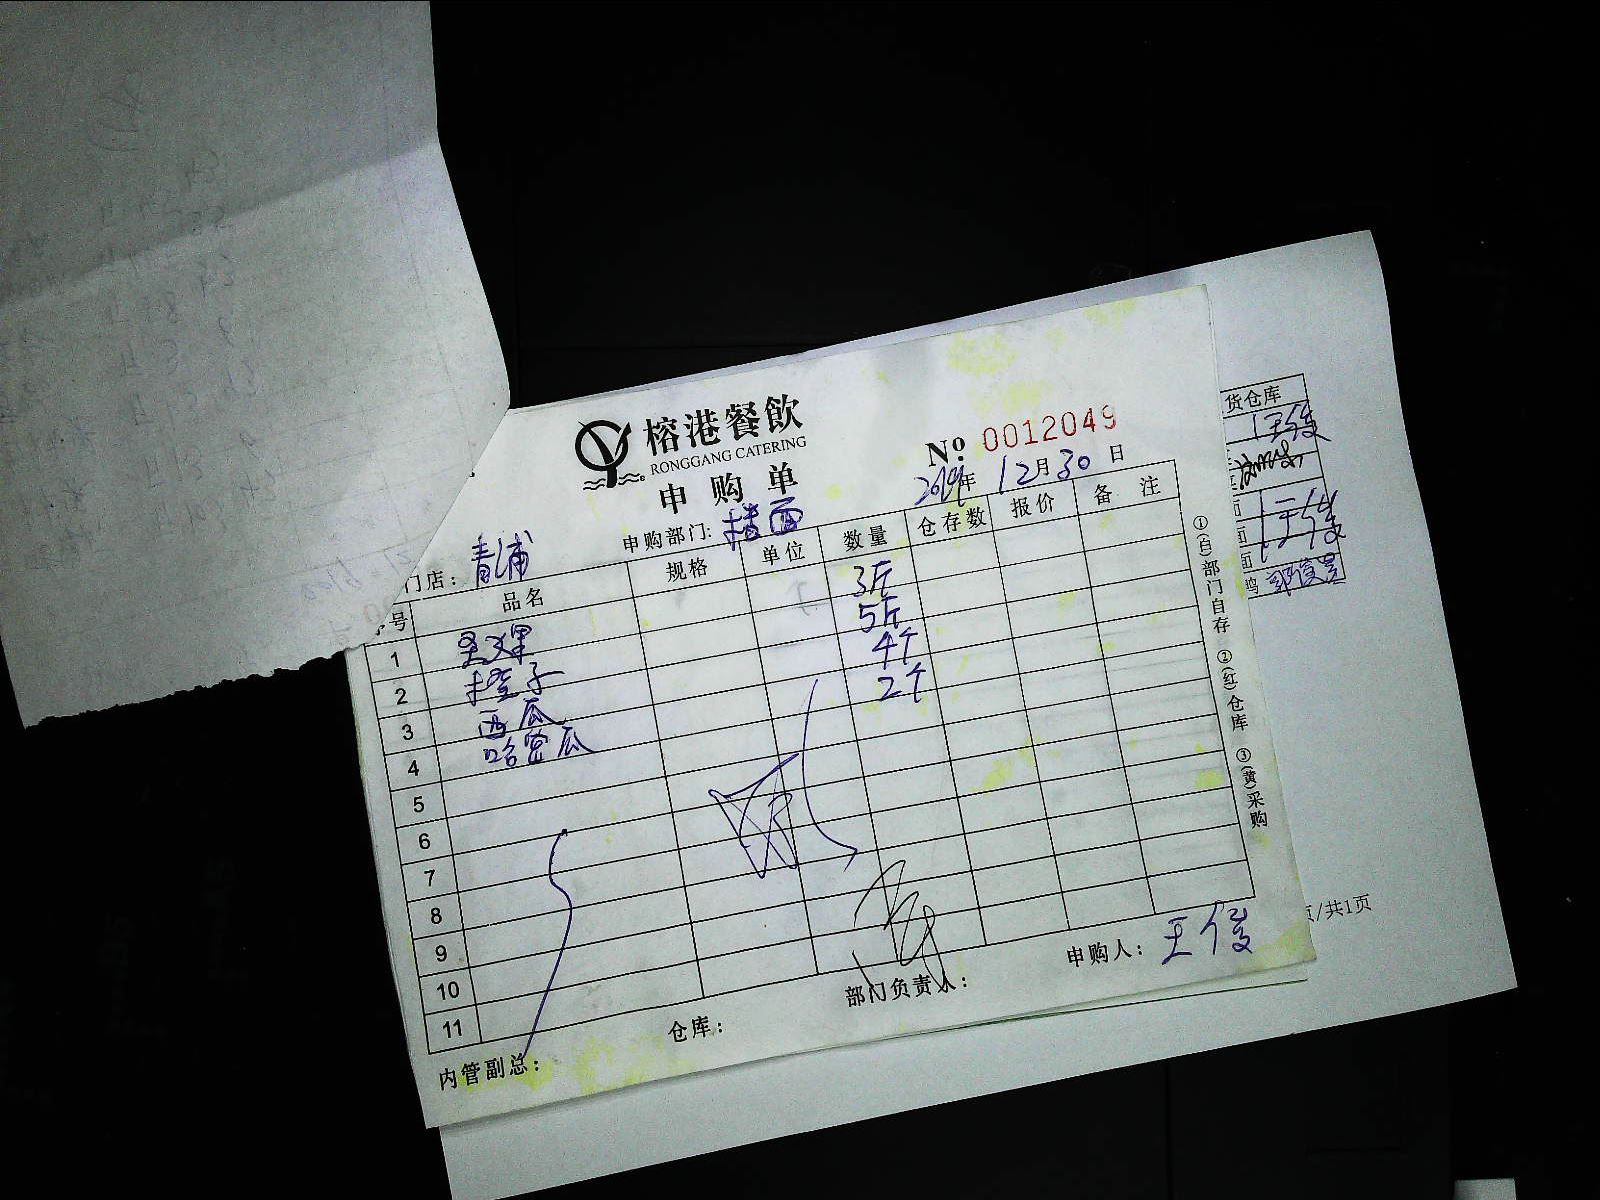 榕港餐飲
RONGGANG CATERING
申购单
№: 0012049
2019年 12月30日
门店：青浦 申购部门: 楼面
序号 品名 规格 单位 数量 仓存数 报价 备注
1 圣女果 3斤
2 橙子 5斤
3 西瓜 4个
4 哈密瓜 2个
5
6
7
8
9
10
11
内管副总： 仓库： 部门负责人： 申购人：王俊
①(白)部门自存 ②(红)仓库 ③(黄)采购
货仓库
王俊
面
面 王俊
面
鸡
页/共1页